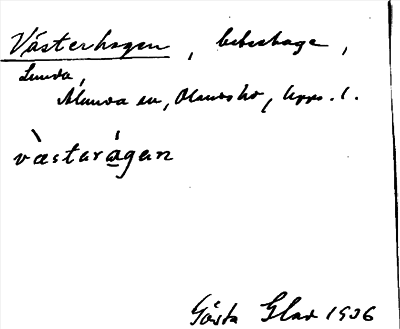 Västerhagen, beteshage,
Lunda,
Alunda sn, Olands hd, Upps. l.
västarágan
Gösta Glad 1936